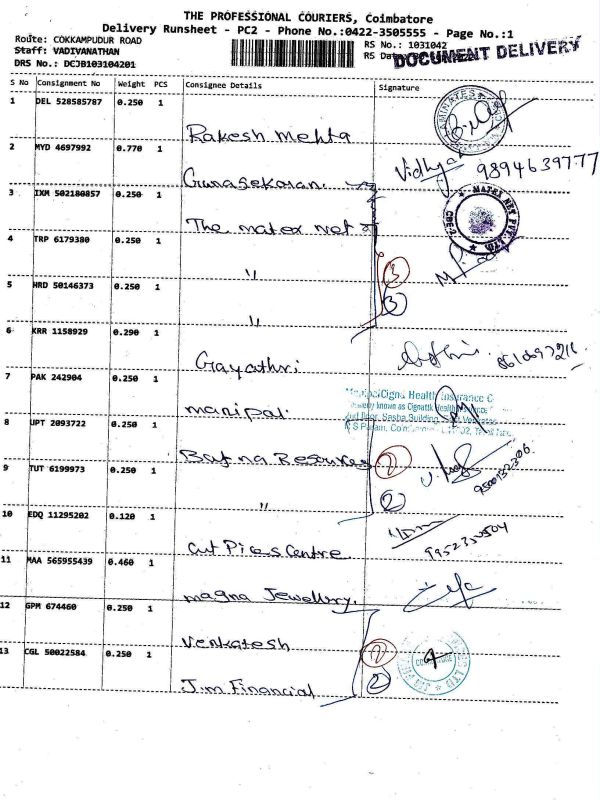 THE PROFESSIONAL COURIERS, Coimbatore
Delivery Runsheet - PC2 - Phone No.:0422-3505555 - Page No.:1
Route: COKKAMPUDUR ROAD
Staff: VADIVANATHAN
DRS No.: DCJB103104201
RS No.: 1031042
RS Dat
DOCUMENT DELIVERY
S No Consignment No Weight PCS Consignee Details Signature
1 DEL 528585787 0.250 1
Rakesh Mehta
2 MYD 4697992 0.770 1
Vidhya 9894639777
Gunasekaran.
3 IXM 502180857 0.250 1
The matex net
MATEX NET PVT. LTD.
4 TRP 6179380 0.250 1
"
3
5 HRD 50146373 0.250 1
3
"
6 KRR 1158929 0.290 1
Gayathri
7 PAK 242904 0.250 1
ManipalCigna Health Insurance C
manipal.
8 UPT 2093722 0.250 1
Bafna Resources
2
9 TUT 6199973 0.250 1
2
9500132306.
"
10 EDQ 11295202 0.120 1
Cut Pices Centre
11 MAA 565955439 0.460 1
magna Jewellery.
12 GPM 674460 0.250 1
Venkatesh
13 CGL 50022584 0.250 1
2
2
J.m Financial